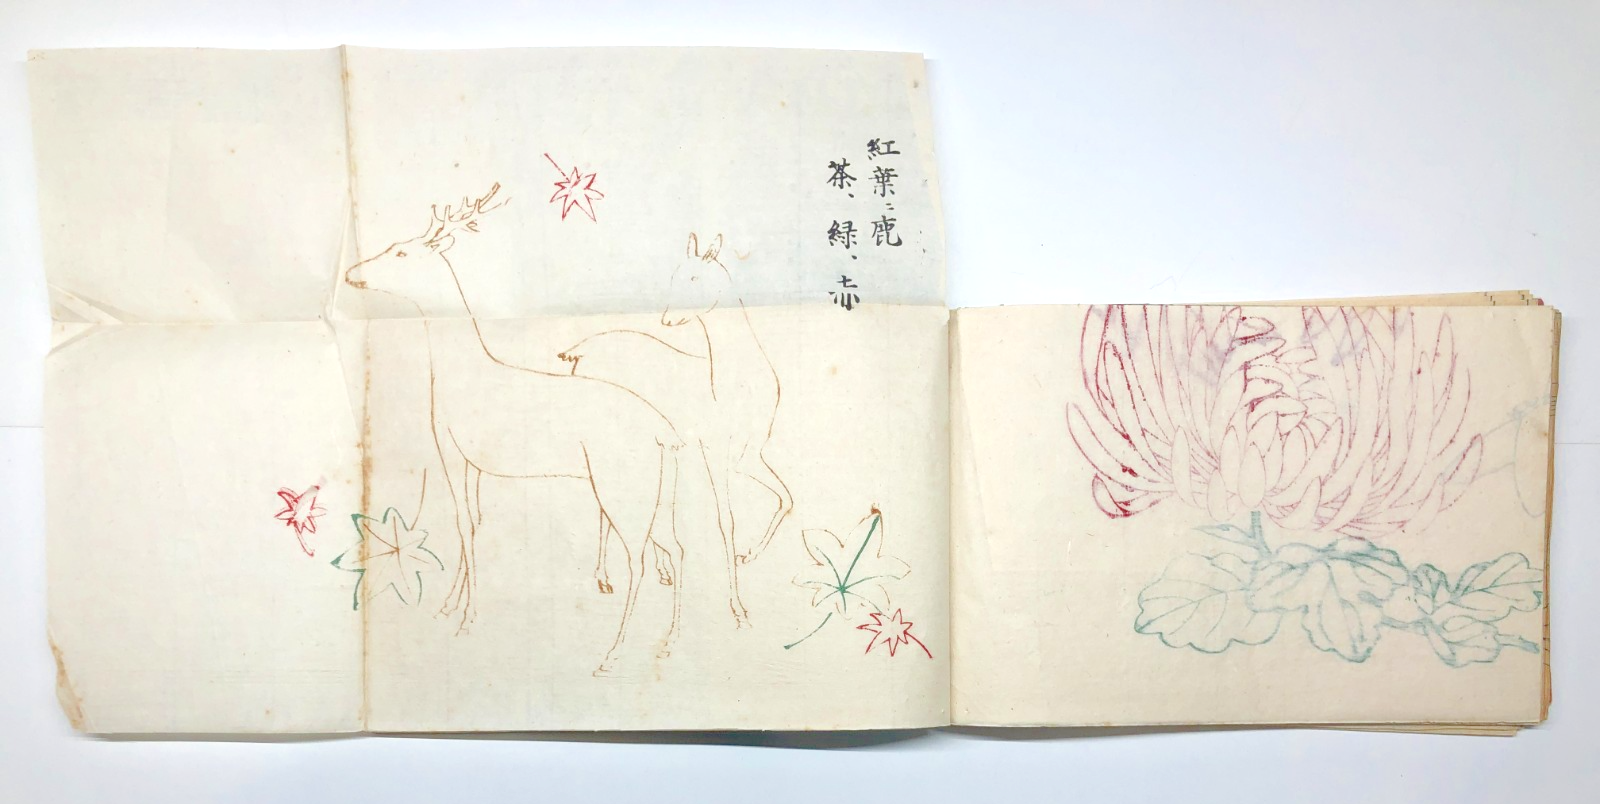 紅葉ニ鹿
茶、緑、赤